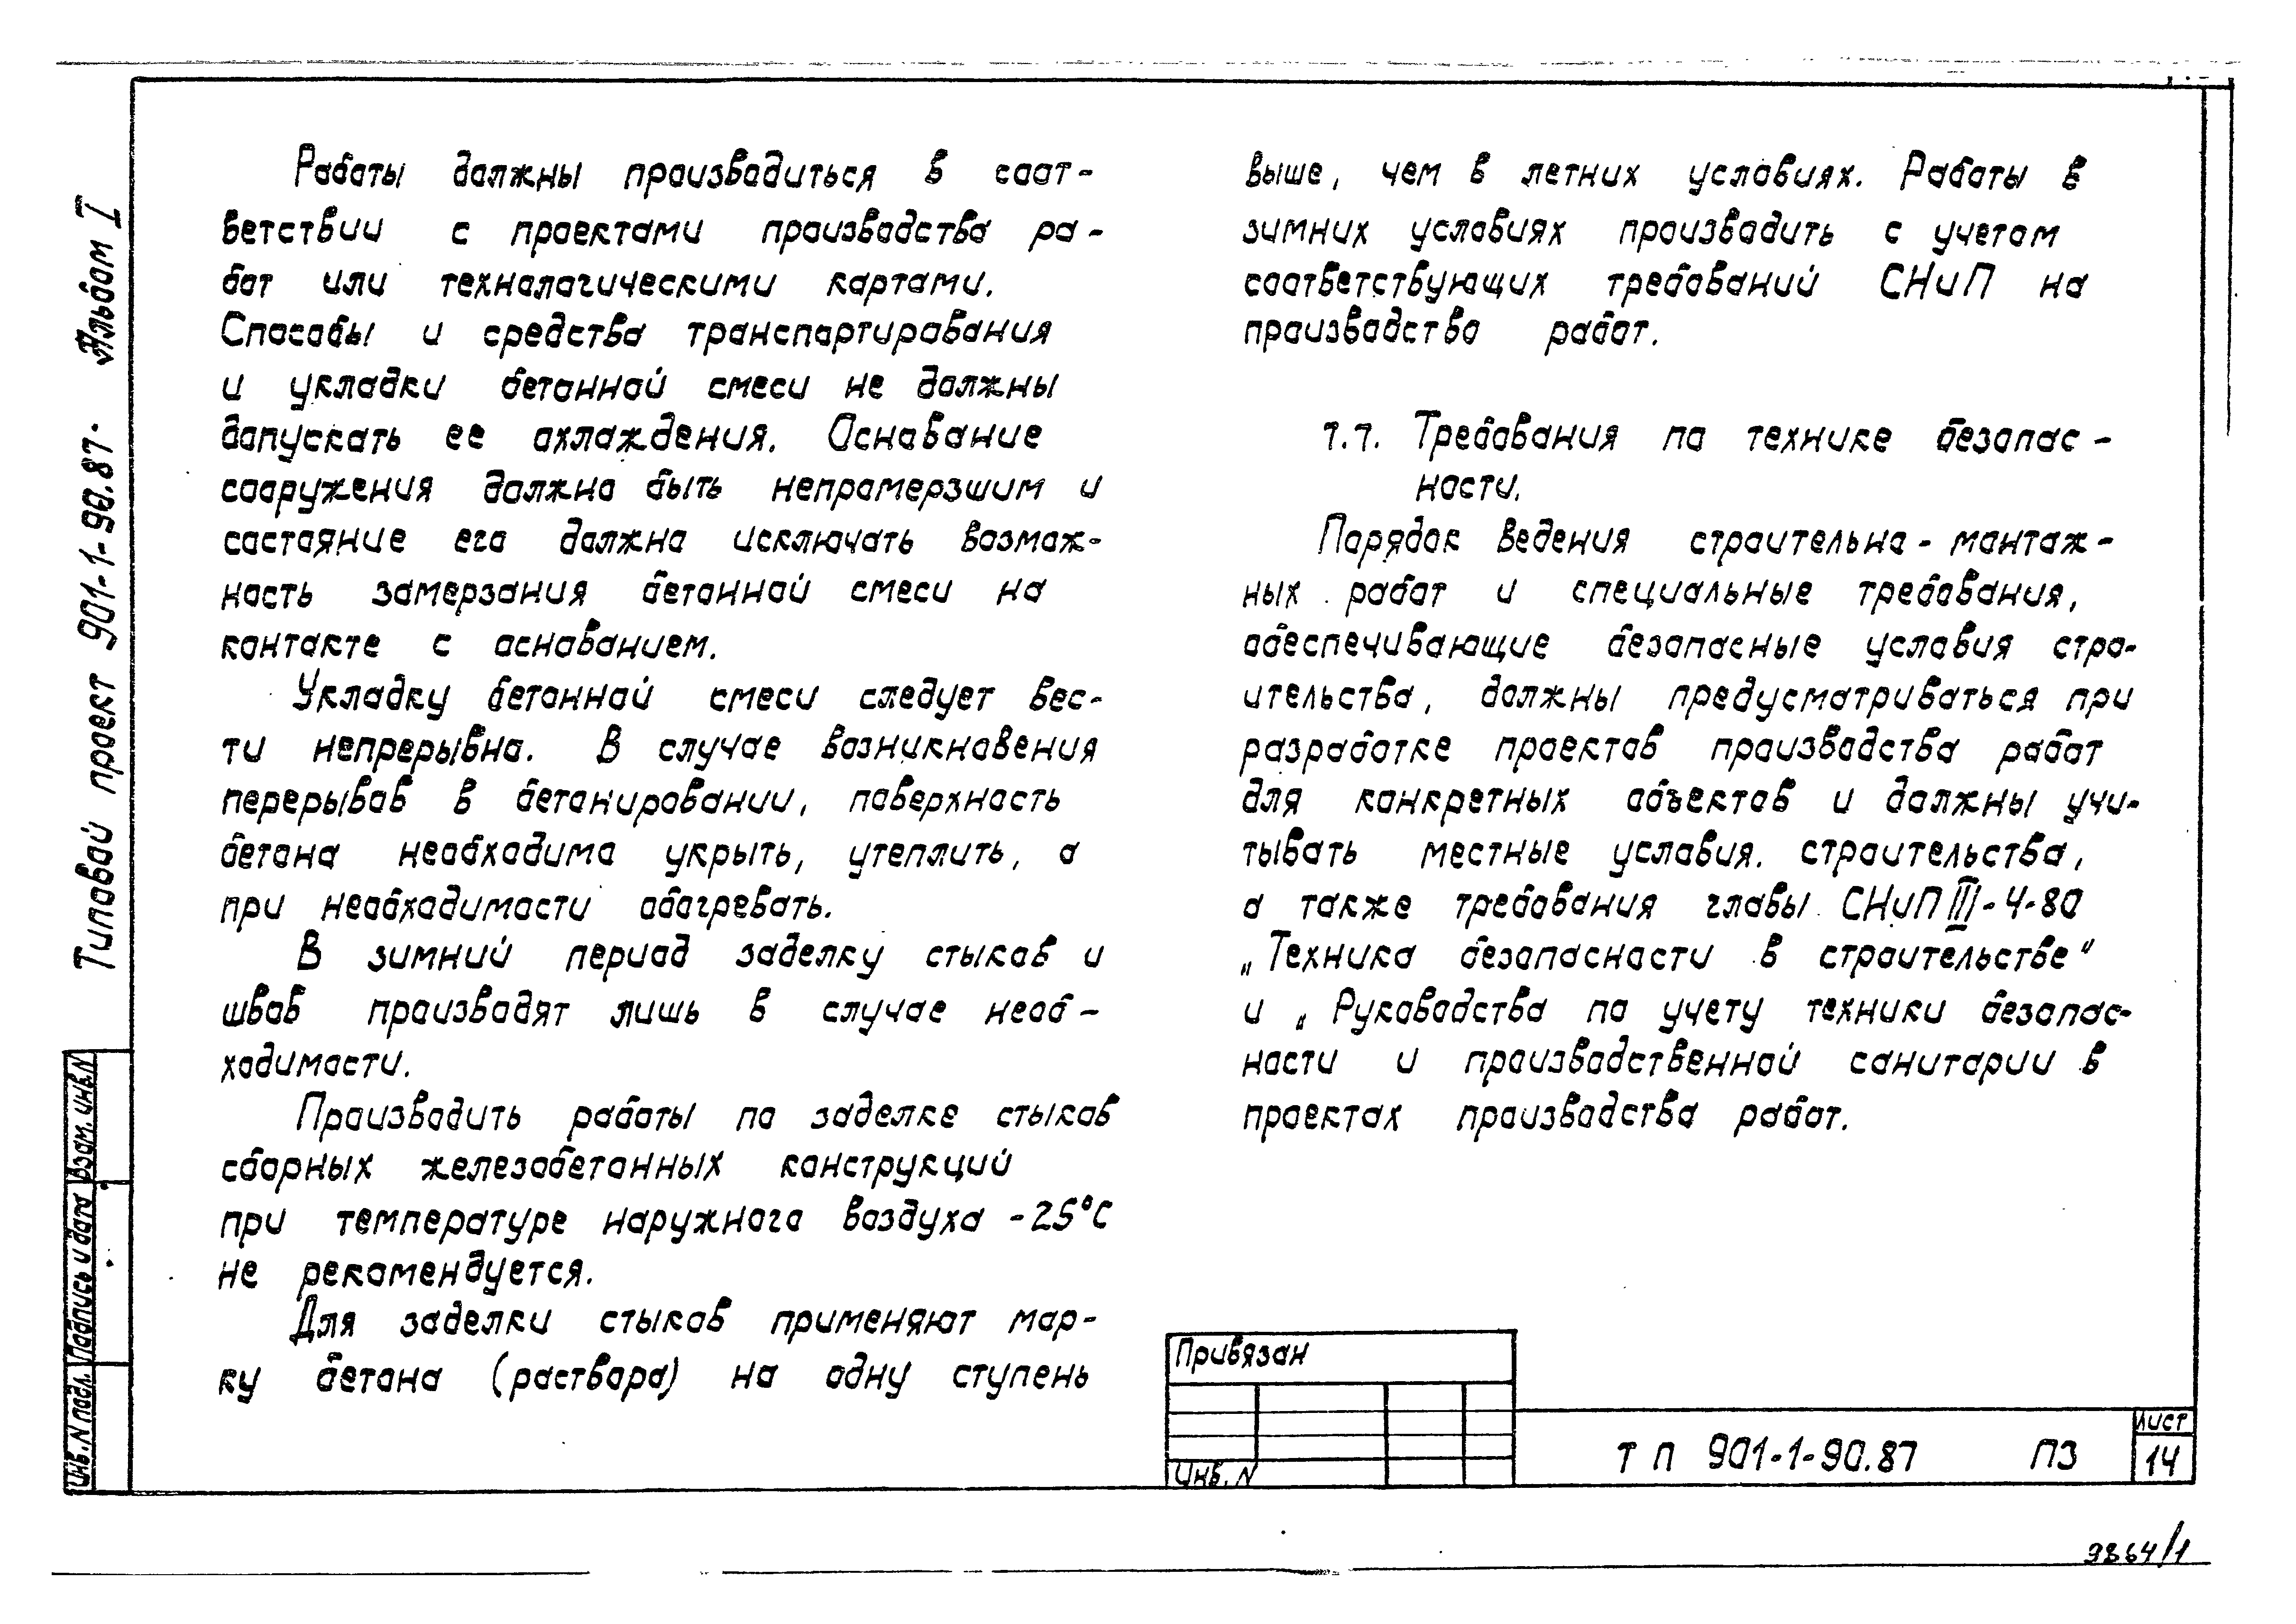 Работы должны производиться в соот-
ветствии с проектами производства ра-
бот или технологическими картами.
Способы и средства транспортирования
и укладки бетонной смеси не должны
допускать ее охлаждения. Основание
сооружения должно быть непромерзшим и
состояние его должно исключать возмож-
ность замерзания бетонной смеси на
контакте с основанием.
Укладку бетонной смеси следует вес-
ти непрерывно. В случае возникновения
перерывов в бетонировании, поверхность
бетона необходимо укрыть, утеплить, а
при необходимости обогревать.
В зимний период заделку стыков и
швов производят лишь в случае необ-
ходимости.
Производить работы по заделке стыков
сборных железобетонных конструкций
при температуре наружного воздуха -25°С
не рекомендуется.
Для заделки стыков применяют мар-
ку бетона (раствора) на одну ступень
выше, чем в летних условиях. Работы в
зимних условиях производить с учетом
соответствующих требований СНиП на
производство работ.
7.7. Требования по технике безопас-
ности.
Порядок ведения строительно-монтаж-
ных работ и специальные требования,
обеспечивающие безопасные условия стро-
ительства, должны предусматриваться при
разработке проектов производства работ
для конкретных объектов и должны учи-
тывать местные условия. строительства,
а также требования главы СНиП III-4-80
„Техника безопасности в строительстве"
и „Руководства по учету техники безопас-
ности и производственной санитарии в
проектах производства работ.
Типовой проект 901-1-90.87. Альбом I
Взам. инв. N
Подпись и дата
Инв. N подл.
Привязан
Инв. N
ТП 901-1-90.87 ПЗ
Лист
14
9864/1